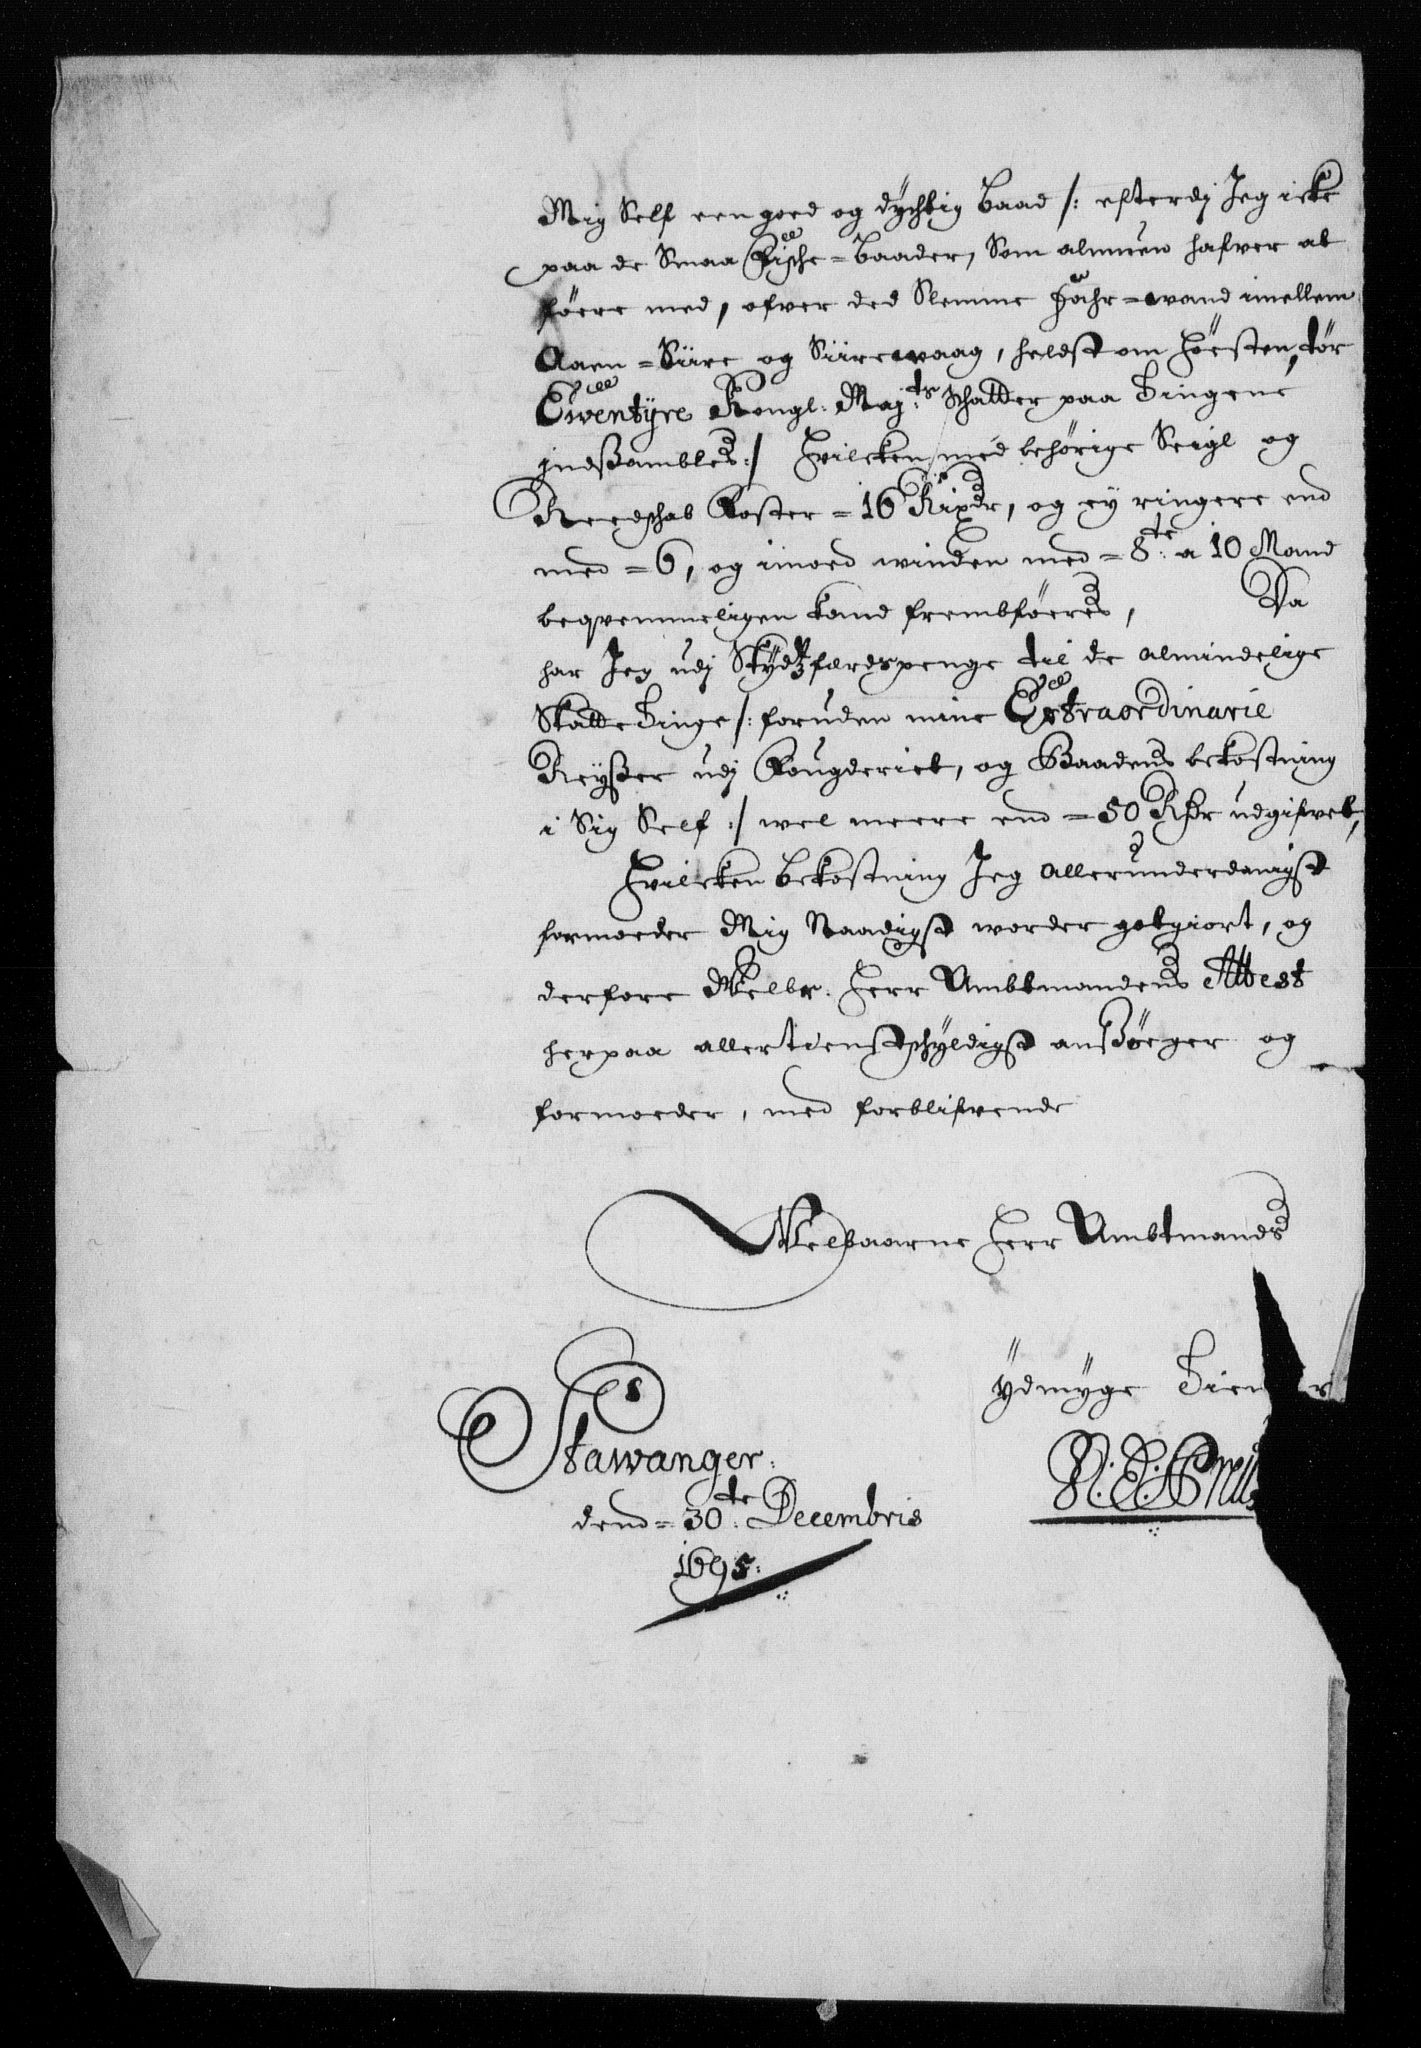 Mig Self een goed og dÿchtig Baad /: efterdj Jeg icke
paa de Smaa Fische=Baader, Som almuen hafver at
föere med, ofver ded Slemme Fahr=wand imellem
Aaen=Siire og Siirewaag, heldst om Höesten, tör
Ewentÿre Kongl: Maj:ts Schatter paa Tingene
jndßambles :/ Hvilcken med behörige Seigl og
Reedschab Koster = 16 Rixdr, og ey ringere end
med = 6, og imoed winden med = 8:te a 10 Mand
beqvemmeligen kand frembföeres, Da
har Jeg udj Skÿdtzfærdspenge til de almindelige
Skatte Tinge /: foruden mine Extraordinarie
Reyßer udj Fougderiet, og Baadens bekostning
i Sig Self :/ wel meere end = 50 Rdr udgifvet,
Hvilcken bekostning Jeg allerunderdanigst
formoeder Mig Naadigst worder gotgiort, og
derfore Welbr. Herr Ambtmandens Attest
herpaa allertienstschÿldigst anßöeger og
formoeder, med forblifvende
Welbaarne Herr Ambtmands
ÿdmÿge Tien r
Stawanger.
dend = 30:te Decembris
1695: